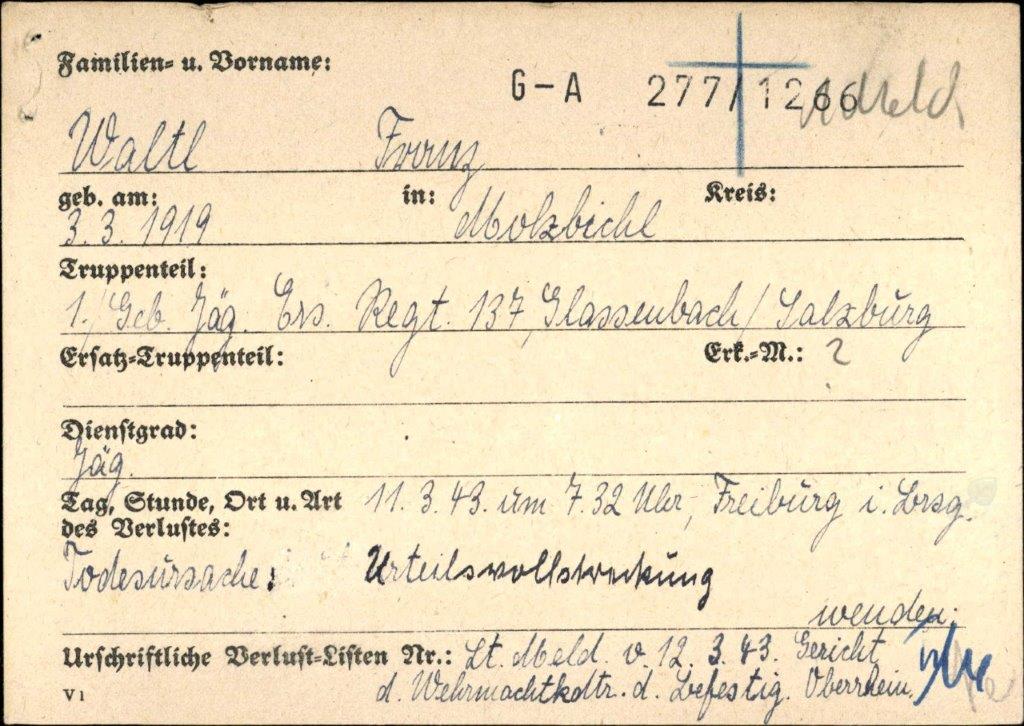 Familien- u. Vorname:
G-A 277/1266 Meld
Waltl Franz
geb. am: in: Kreis:
3. 3. 1919 Molzbichl
Truppenteil:
1./Geb. Jäg. Ers. Regt. 137, Glassenbach/Salzburg
Ersatz-Truppenteil: Erk.-M.: 2
Dienstgrad:
Jäg.
Tag, Stunde, Ort u. Art 11. 3. 43. um 7.32 Uhr, Freiburg i. Brsg.
des Verlustes:
Todesursache: Urteilsvollstreckung
wenden.
Urschriftliche Verlust-Listen Nr.: Lt. Meld. v. 12. 3. 43. Gericht
V1 d. Wehrmachtkdtr. d. Befestig. Oberrhein.